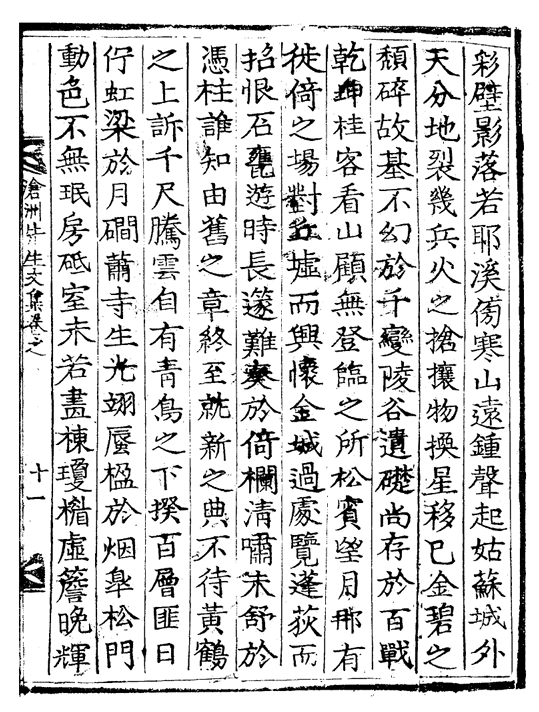 彩壁影落若耶溪傍寒山遠鍾聲起姑蘇城外
天分地裂幾兵火之搶攘物換星移已金碧之
頹碎故基不幻於千變陵谷遺礎尚存於百戰
乾坤桂客看山顧無登臨之所松賓望月那有
徙倚之場對丘墟而興懷金城過處覽蓬荻而
招恨石甕遊時長篴難奏於倚欄淸嘯未舒於
憑柱誰知由舊之章終至就新之典不待黃鶴
之上訴千尺騰雲自有靑鳥之下揆百層匪日
佇虹梁於月磵蕭寺生光翊蜃楹於烟皐松門
動色不無珉房砥室未若畫棟瓊楣虛簷晩輝
滄洲先生文集卷之
十一